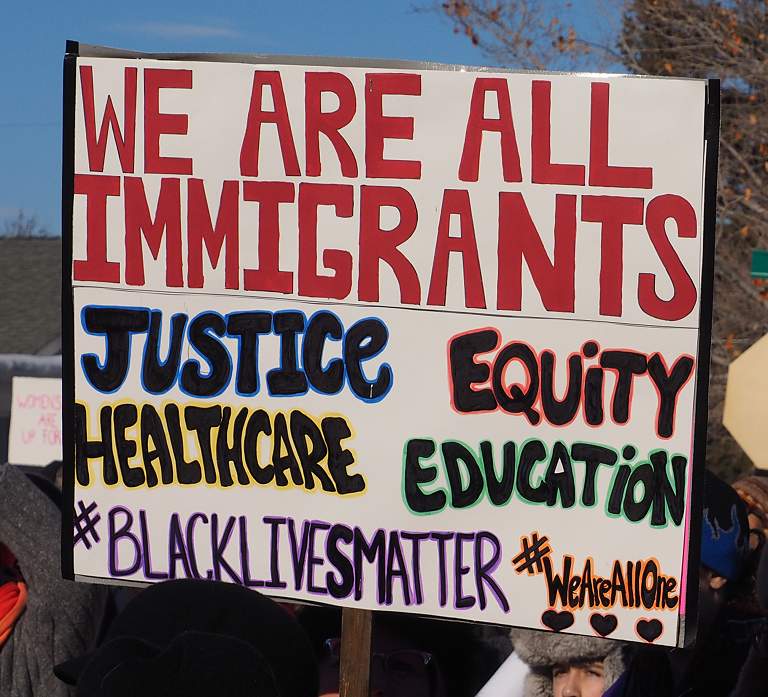 WE ARE ALL
IMMIGRANTS
JUSTICE EQUITY
HEALTHCARE EDUCATION
#BLACKLIVESMATTER #WeAreAllOne
WOMENS
ARE
UP FOR